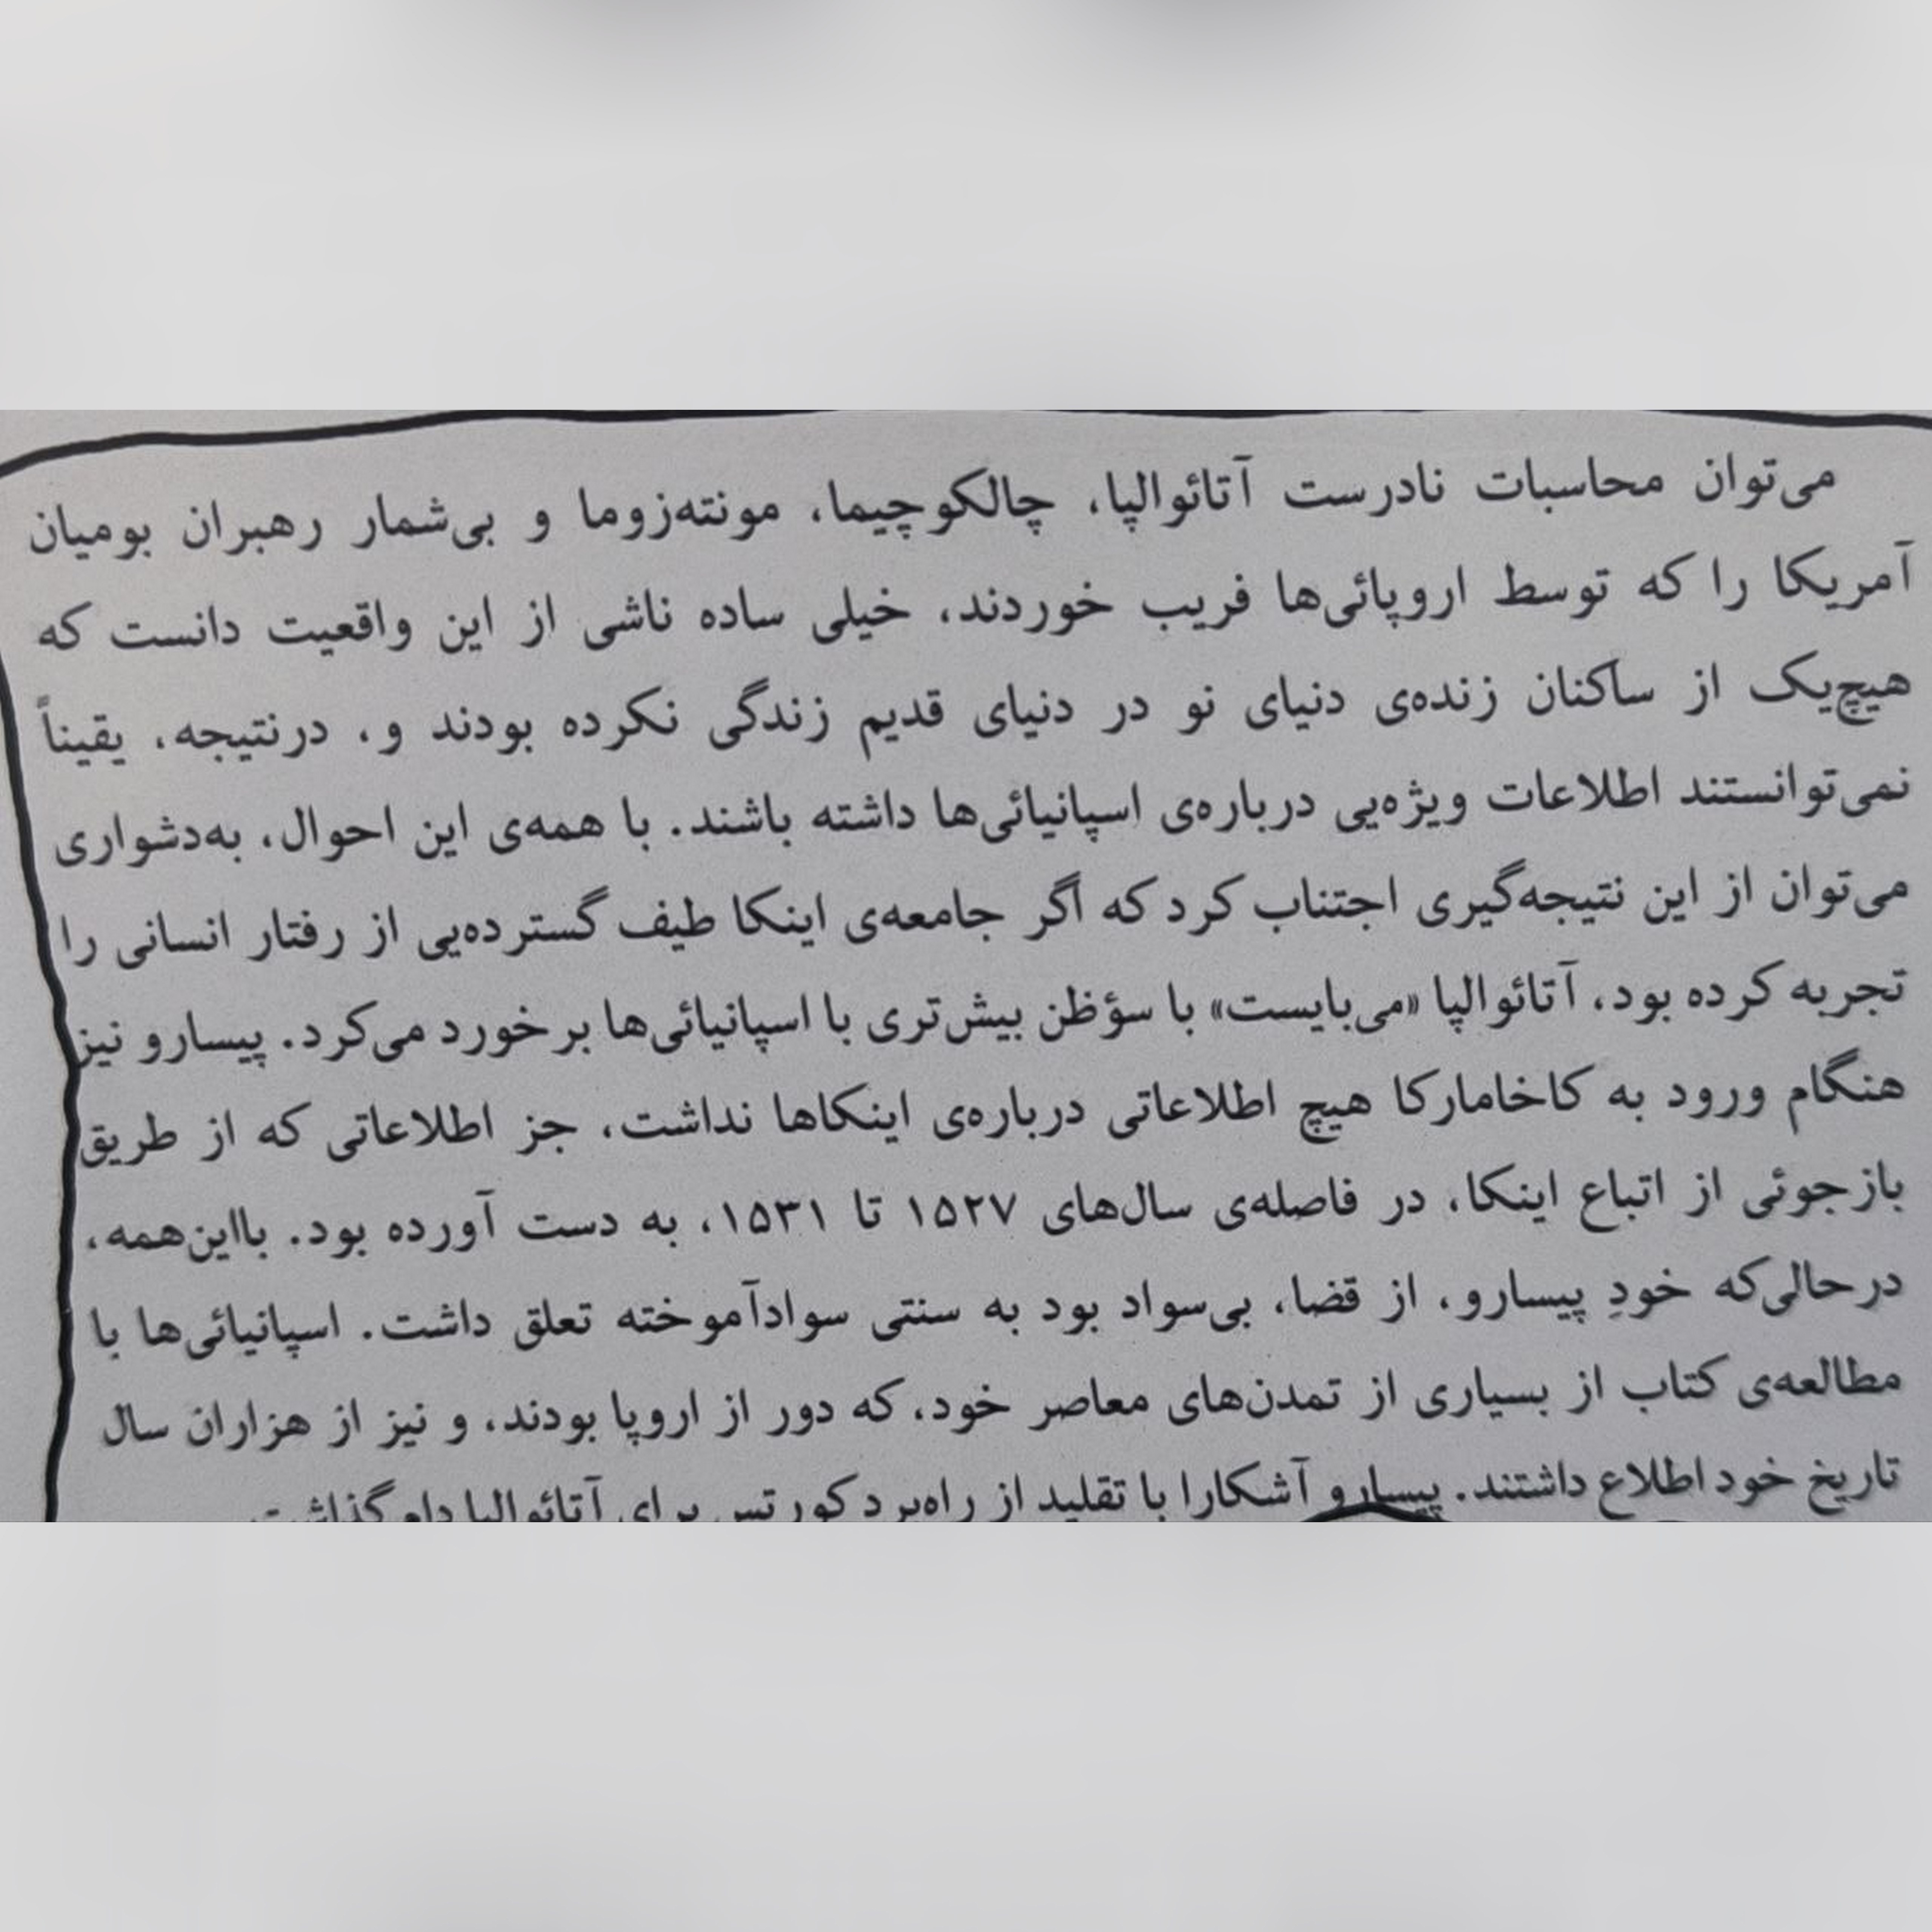 می‌توان محاسبات نادرست آتائوالپا، چالکوچیما، مونته‌زوما و بی‌شمار رهبران بومیان
آمریکا را که توسط اروپائی‌ها فریب خوردند، خیلی ساده ناشی از این واقعیت دانست که
هیچ‌یک از ساکنان زنده‌ی دنیای نو در دنیای قدیم زندگی نکرده بودند و، درنتیجه، یقیناً
نمی‌توانستند اطلاعات ویژه‌یی درباره‌ی اسپانیائی‌ها داشته باشند. با همه‌ی این احوال، به‌دشواری
می‌توان از این نتیجه‌گیری اجتناب کرد که اگر جامعه‌ی اینکا طیف گسترده‌یی از رفتار انسانی را
تجربه کرده بود، آتائوالپا «می‌بایست» با سؤظن بیش‌تری با اسپانیائی‌ها برخورد می‌کرد. پیسارو نیز
هنگام ورود به کاخامارکا هیچ اطلاعاتی درباره‌ی اینکاها نداشت، جز اطلاعاتی که از طریق
بازجوئی از اتباع اینکا، در فاصله‌ی سال‌های ۱۵۲۷ تا ۱۵۳۱، به دست آورده بود. بااین‌همه،
درحالی‌که خودِ پیسارو، از قضا، بی‌سواد بود به سنتی سوادآموخته تعلق داشت. اسپانیائی‌ها با
مطالعه‌ی کتاب از بسیاری از تمدن‌های معاصر خود، که دور از اروپا بودند، و نیز از هزاران سال
تاریخ خود اطلاع داشتند. پیسارو آشکارا با تقلید از راه‌برد کورتس برای آتائوالپا دام گذاشت